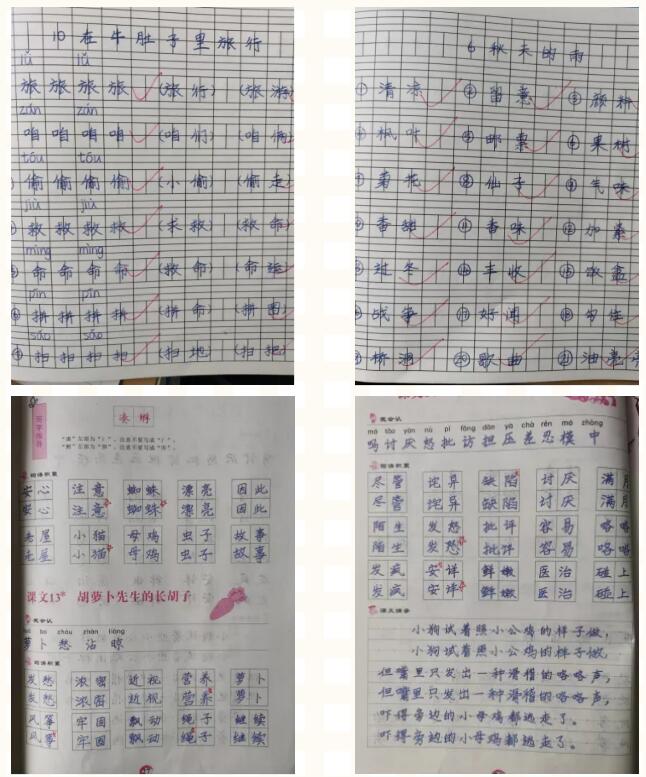 10 在牛肚子里旅行
lǚ lǚ
旅 旅 旅 旅 (旅行) (旅游)
zán zán
咱 咱 咱 咱 (咱们) (咱俩)
tōu tōu
偷 偷 偷 偷 (小偷) (偷走)
jiù jiù
救 救 救 救 (求救) (救命)
mìng mìng
命 命 命 命 (救命) (命运)
pīn pīn
拼 拼 拼 拼 (拼命) (拼图)
sǎo sǎo
扫 扫 扫 扫 (扫地) (扫把)
6 秋天的雨
① 清凉 ② 留意 ③ 颜料
枫叶 ⑤ 邮票 ⑥ 果树
菊花 ⑧ 仙子 ⑨ 气味
香甜 ⑪ 香味 ⑫ 加紧
过冬 ⑭ 丰收
战争 ⑰ 好闻 ⑱ 勾住
⑳ 歌曲 ㉑ 油亮
安心 注意 蜘蛛 漂亮 因此
安心 注意 蜘蛛 漂亮 因此
老屋 小猫 母鸡 虫子 故事
老屋 小猫 母鸡 虫子 故事
课文13* 胡萝卜先生的长胡子
我会认
luó bo chóu zhān liàng
萝 卜 愁 沾 晾
词语积累
发愁 浓密 近视 营养 萝卜
发愁 浓密 近视 营养 萝卜
风筝 牢固 飘动 绳子 继续
风筝 牢固 飘动 绳子 继续
47
我会认
má tǎo yàn nù pī fǎng dān yā chà rěn mó zhòng
吗 讨 厌 怒 批 访 担 压 差 忍 模 中
词语积累
尽管 诧异 缺陷 讨厌 满月
尽管 诧异 缺陷 讨厌 满月
陌生 发怒 批评 容易 咯咯
陌生 发怒 批评 容易 咯咯
发疯 安详 鲜嫩 医治 碰上
发疯 安详 鲜嫩 医治 碰上
小狗试着照小公鸡的样子做,
小狗试着照小公鸡的样子做,
但嘴里只发出一种滑稽的咯咯声,
但嘴里只发出一种滑稽的咯咯声,
吓得旁边的小母鸡都逃走了。
吓得旁边的小母鸡都逃走了。